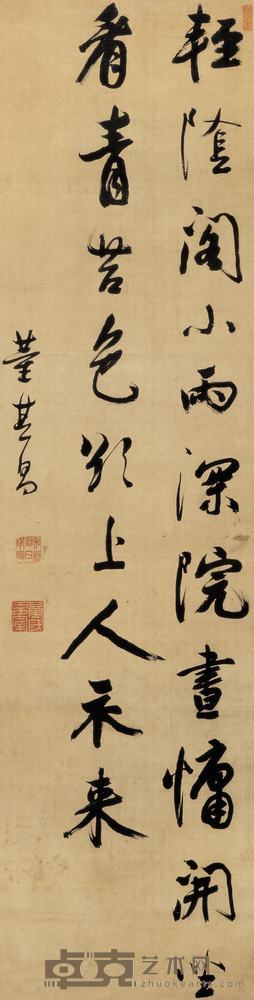 輕陰閣小雨深院晝慵開坐
看青苔色欲上人衣来
董其昌
卓克艺术网
zhuokearts.com